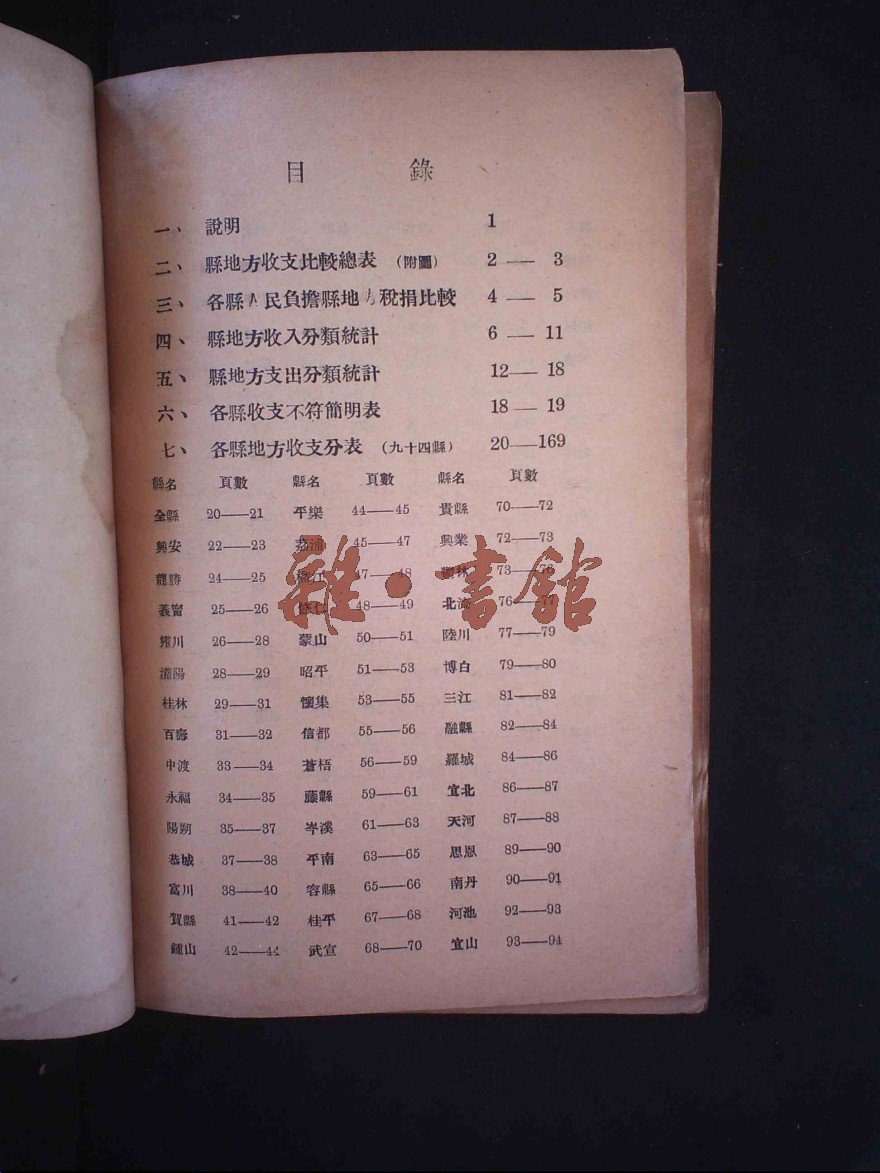 目 錄
一、 說明 1
二、 縣地方收支比較總表 (附圖) 2 — 3
三、 各縣人民負擔縣地方稅捐比較 4 — 5
四、 縣地方收入分類統計 6 — 11
五、 縣地方支出分類統計 12 — 18
六、 各縣收支不符簡明表 18 — 19
七、 各縣地方收支分表 (九十四縣) 20 —169
縣名 頁數 縣名 頁數 縣名 頁數
全縣 20——21 平樂 44——45 貴縣 70——72
興安 22——23 荔浦 45——47 興業 72——73
龍勝 24——25 47——48 73——76
義甯 25——26 修仁 48——49 北流 76——77
26——28 蒙山 50——51 陸川 77——79
灌陽 28——29 昭平 51——53 博白 79——80
桂林 29——31 懷集 53——55 三江 81——82
百壽 31——32 信都 55——56 融縣 82——84
中渡 33——34 蒼梧 56——59 羅城 84——86
永福 34——35 藤縣 59——61 宜北 86——87
陽朔 35——37 岑溪 61——63 天河 87——88
恭城 37——38 平南 63——65 思恩 89——90
富川 38——40 容縣 65——66 南丹 90——91
賀縣 41——42 桂平 67——68 河池 92——93
鍾山 42——44 武宣 68——70 宜山 93——94
雜·書館